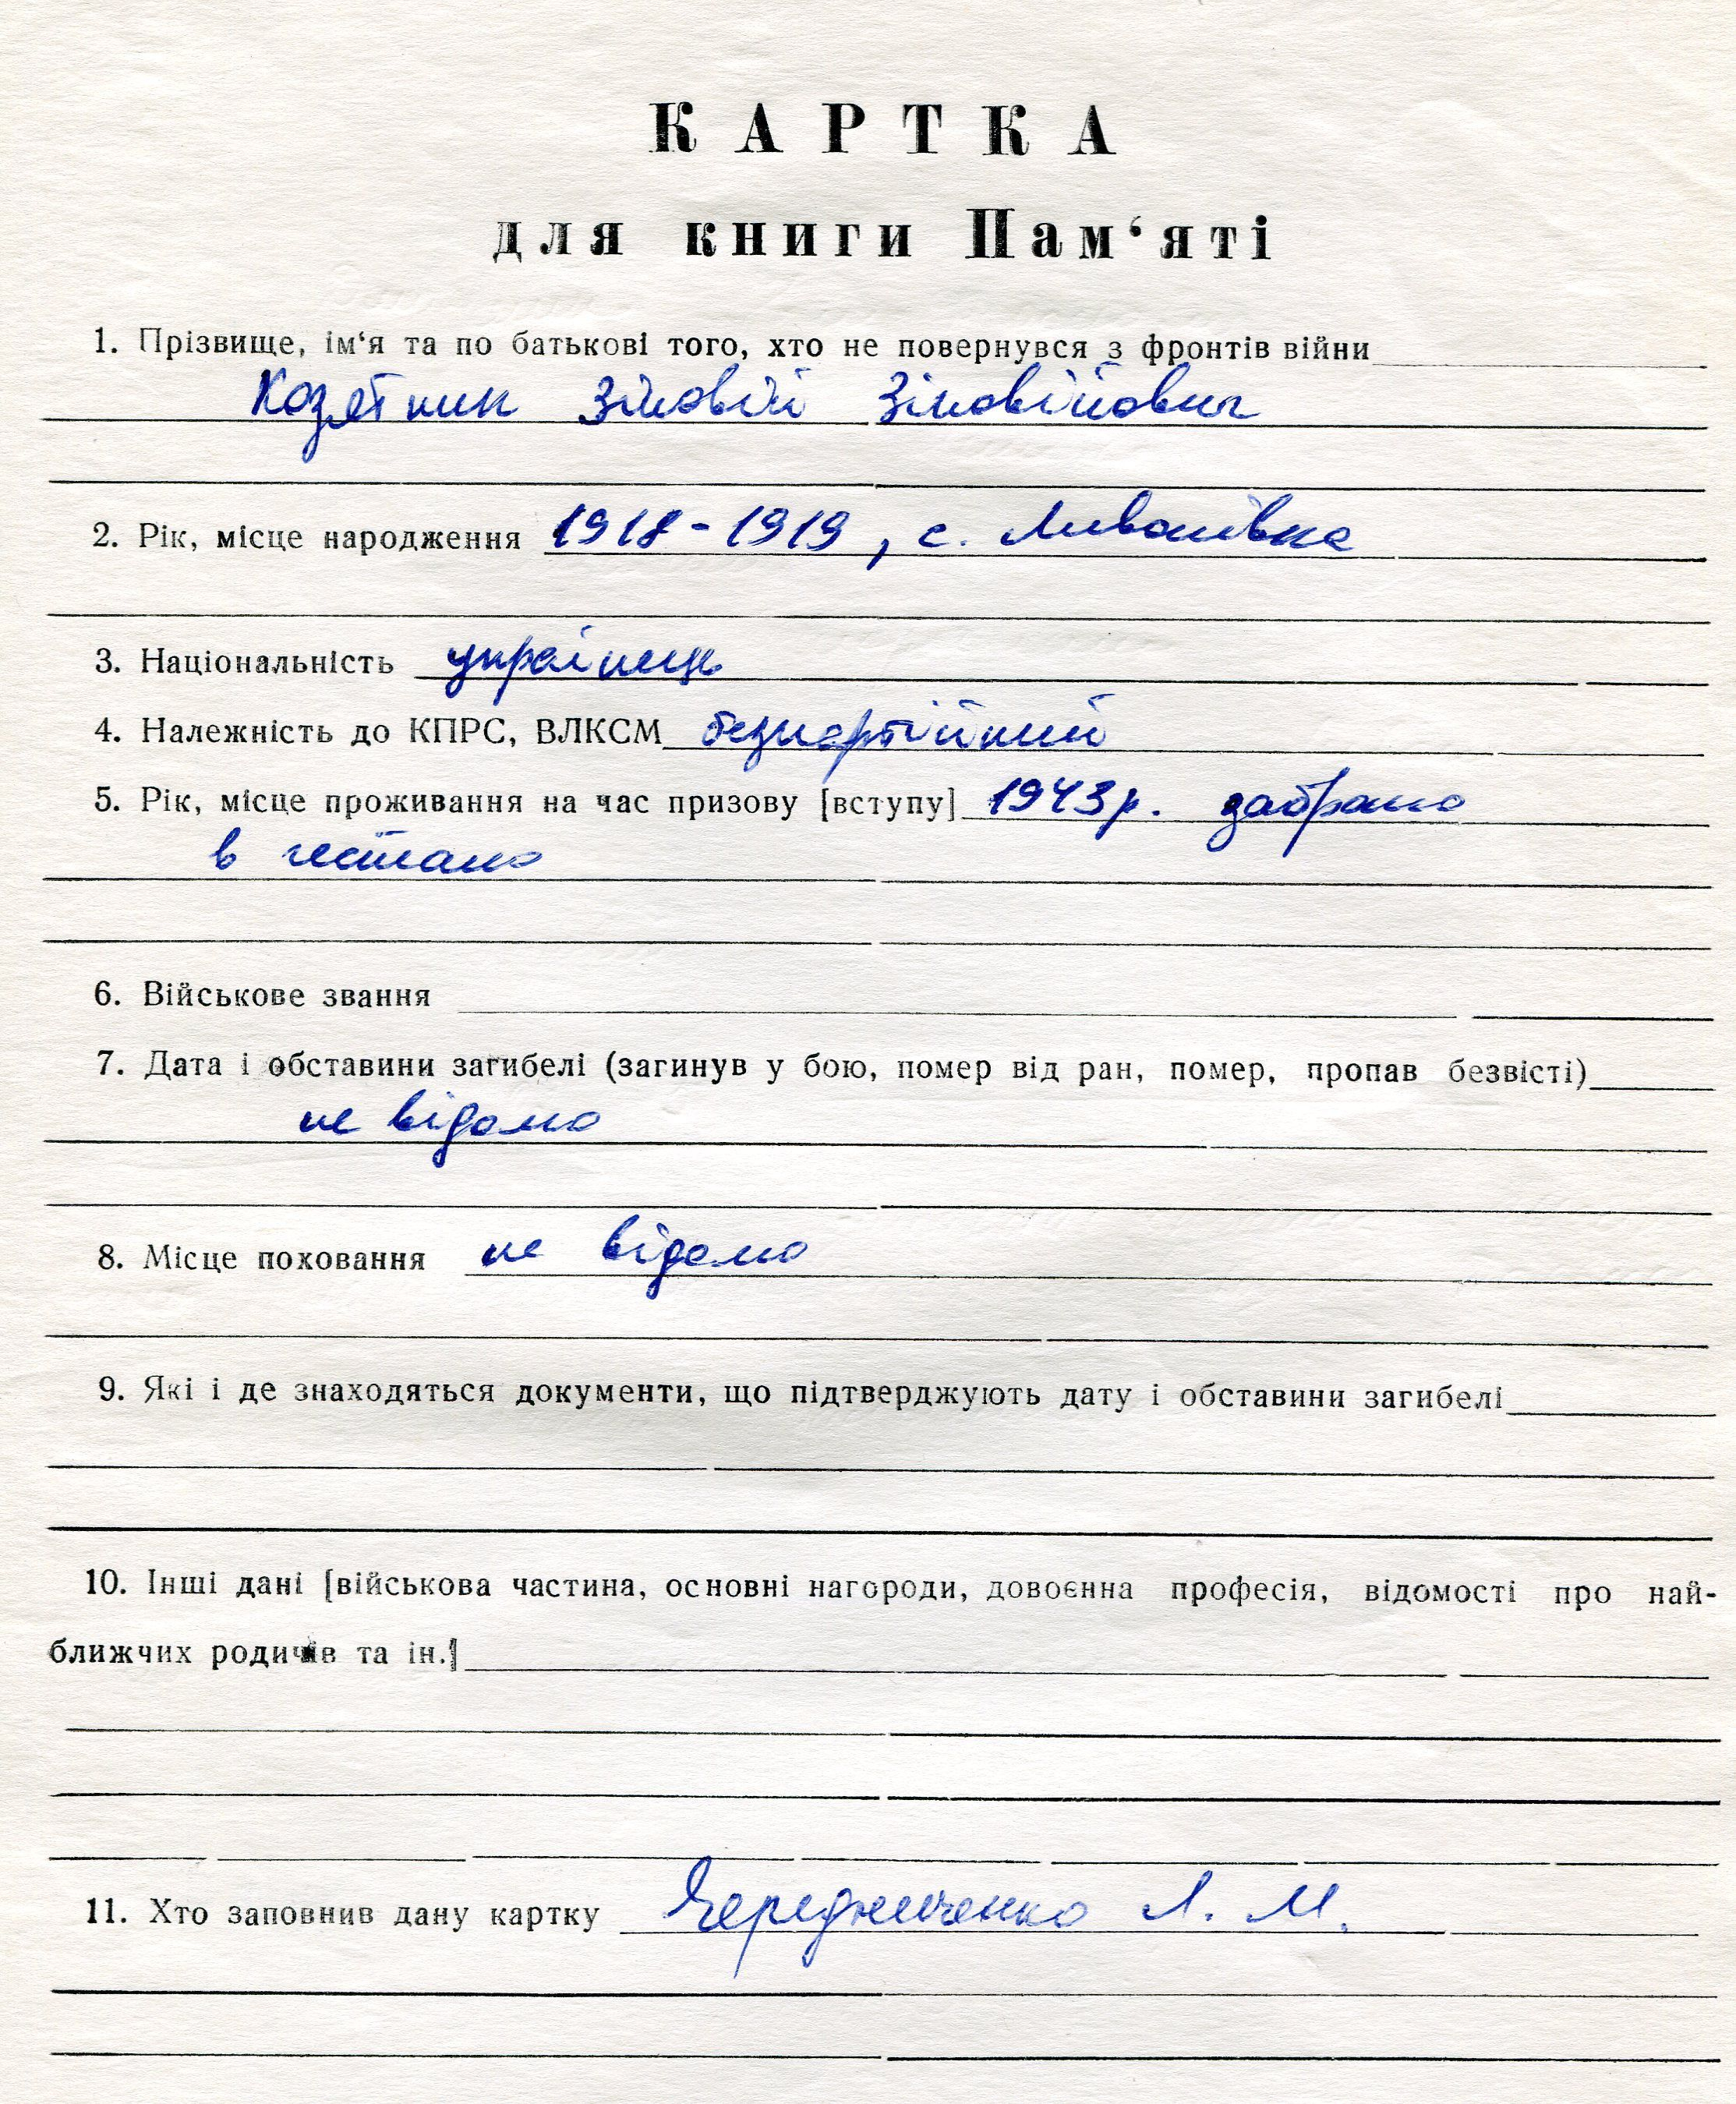 КАРТКА
для книги Пам‘яті
1. Прізвище, ім‘я та по батькові того, хто не повернувся з фронтів війни
Козятник Зіновій Зіновійович
2. Рік, місце народження 1918-1919, с. Лив
3. Національність українець
4. Належність до КПРС, ВЛКСМ безпартійний
5. Рік, місце проживання на час призову [вступу] 1943р. забрано
в гестапо
6. Військове звання
7. Дата і обставини загибелі (загинув у бою, помер від ран, помер, пропав безвісті)
не відомо
8. Місце поховання не відомо
9. Які і де знаходяться документи, що підтверджують дату і обставини загибелі
10. Інші дані [військова частина, основні нагороди, довоєнна професія, відомості про най-
ближчих родичів та ін.]
11. Хто заповнив дану картку Чередниченко Л. М.